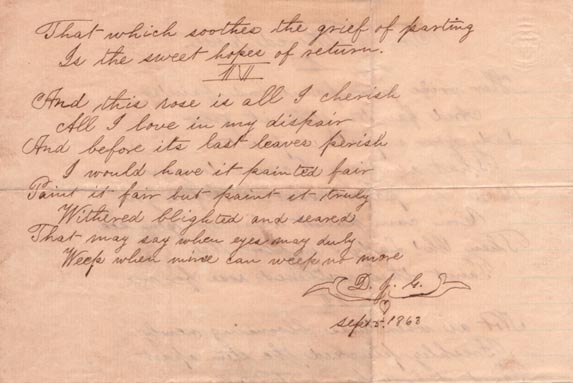 That which soothes the grief of parting
Is the sweet hopes of return.
IVI
And this rose is all I cherish
All I love in my dispair
And before its last leaves perish
I would have it painted fair
Paint it fair but paint it truly
Withered blighted and seared
That may say when eyes may duly
Weep when mine can weep no more
D. J. G.
sept 5. 1863